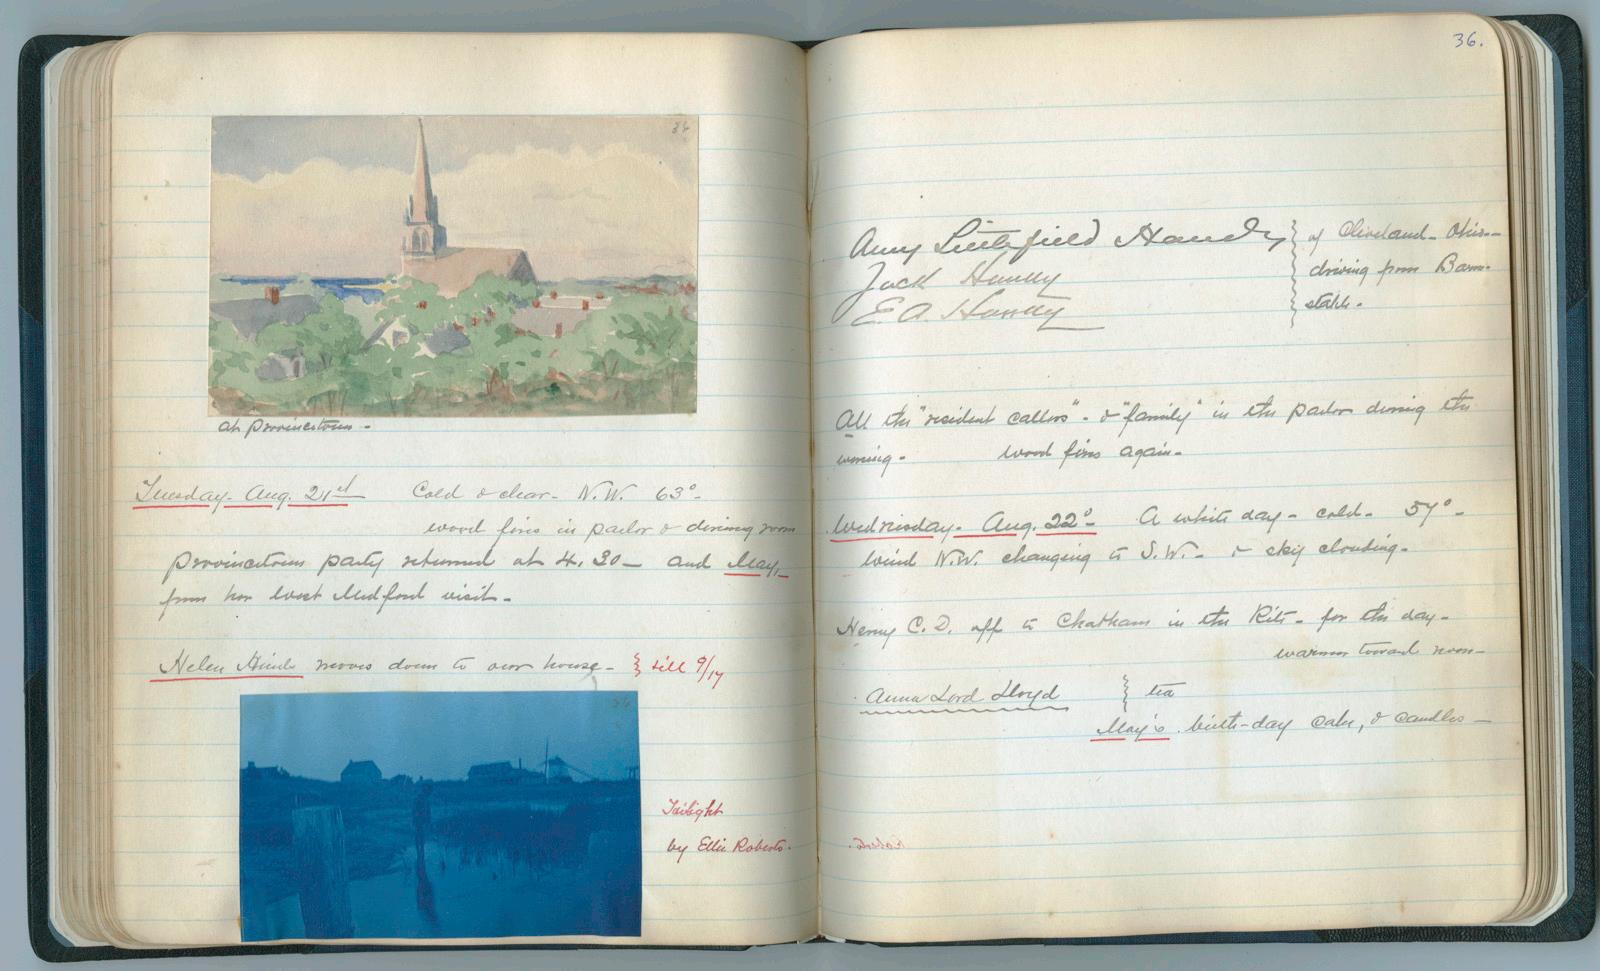 36
at Provincetown -
Tuesday - Aug. 21st Cold & clear - N.W. 63° -
wood fires in parlor & dining room
Provincetown party returned at 4.30 - and May,
from her West Medford visit -
Helen moves down to our house - } till 9/17
36
Twilight
by Ellie Roberts.
36.
Amy Littlefield Handy } of Cleveland - Ohio -
Jack Handy } driving from Barn-
E. A. Handy } stable -
All the "resident callers" - & "family" in the parlor during the
evening - wood fires again -
Wednesday - Aug. 22° - A white day - cold - 57° -
wind N.W. changing to S.W. - & sky clouding -
Henry C. D. off to Chatham in the Kits - for the day -
warmer toward noon -
Anna Lord Lloyd } tea
May's birth-day cake, & candles -